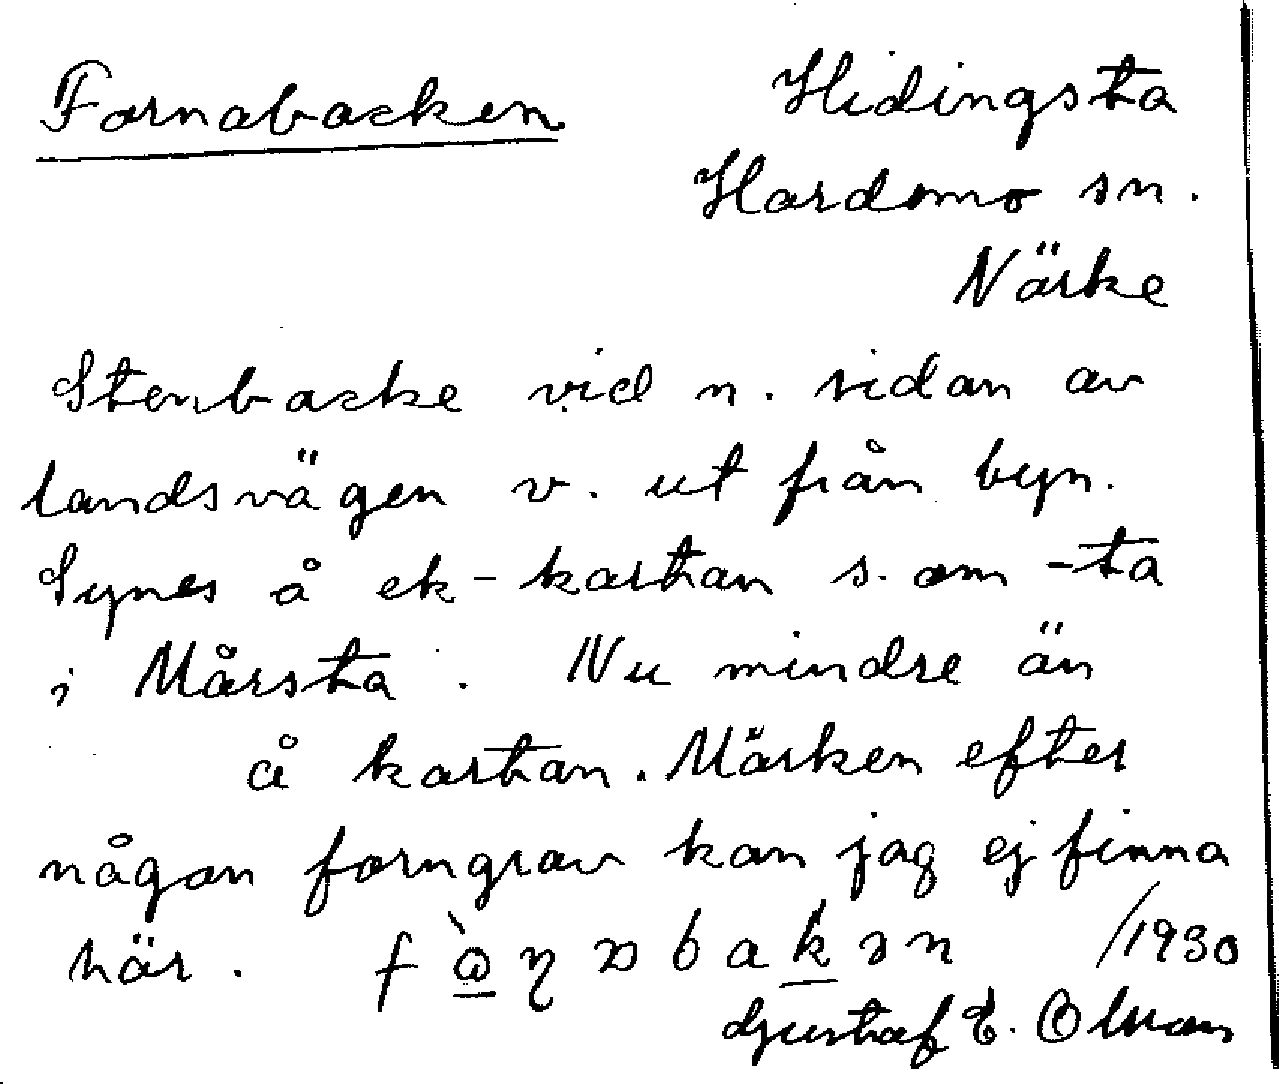 Fornabacken
Hidingsta
Hardemo sn.
Närke
Stenbacke vid n. sidan av
landsvägen v. ut från byn.
Synes å ek-kartan s. om -ta
i Mårsta. Nu mindre än
å kartan. Märken efter
någon forngrav kan jag ej finna
här.
/1930
Gustaf E. Olsson